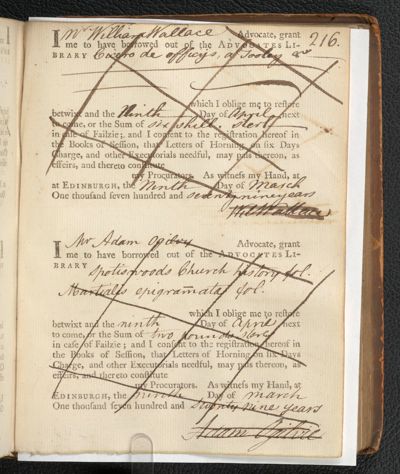 216.
I Mr William Wallace Advocate, grant
me to have borrowed out of the ADVOCATES LI-
BRARY Cicero de officijs, a Tooley 8vo
which I oblige me to restore
betwixt and the Ninth Day of April next
to come, or the Sum of six shill: sterl:
in case of Failzie; and I consent to the registration hereof in
the Books of Session, that Letters of Horning on six Days
Charge, and other Executorials needful, may pass thereon, as
effeirs, and thereto constitute
my Procurators. As witness my Hand, at
at EDINBURGH, the Ninth Day of March
One thousand seven hundred and seventy nine years
Will Wallace
I Mr Adam Ogilvy Advocate, grant
me to have borrowed out of the ADVOCATES LI-
BRARY
Spotiswoods Church history fol.
Martialis epigrammata fol.
which I oblige me to restore
betwixt and the ninth Day of April next
to come, or the Sum of two pounds sterl
in case of Failzie; and I consent to the registration hereof in
the Books of Session, that Letters of Horning on six Days
Charge, and other Executorials needful, may pass thereon, as
effeirs, and thereto constitute
my Procurators. As witness my Hand, at
EDINBURGH, the ninth Day of march
One thousand seven hundred and Seventy nine years
Adam Ogilvie